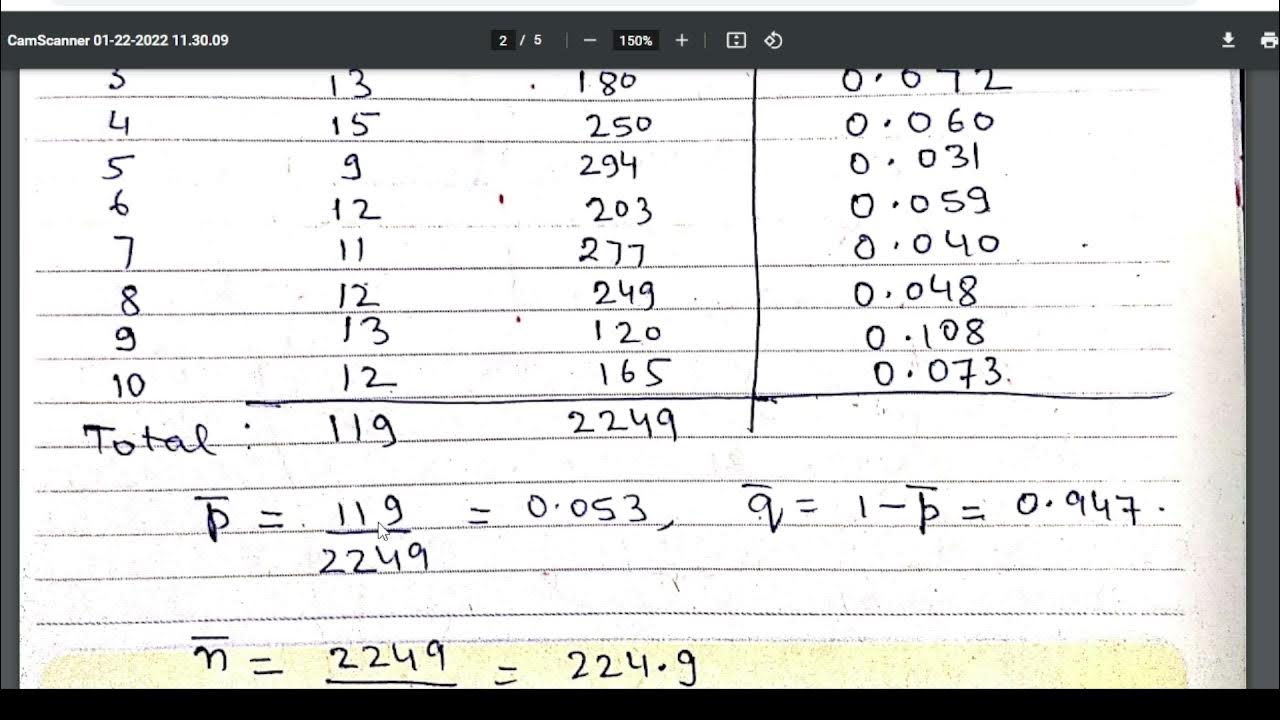 CamScanner 01-22-2022 11.30.09 2 / 5 − 150% +
3 13 180 0.072
4 15 250 0.060
5 9 294 0.031
6 12 203 0.059
7 11 277 0.040
8 12 249 0.048
9 13 120 0.108
10 12 165 0.073
Total: 119 2249
p̅ = 119/2249 = 0.053, q̅ = 1-p̅ = 0.947.
n̅ = 2249 = 224.9